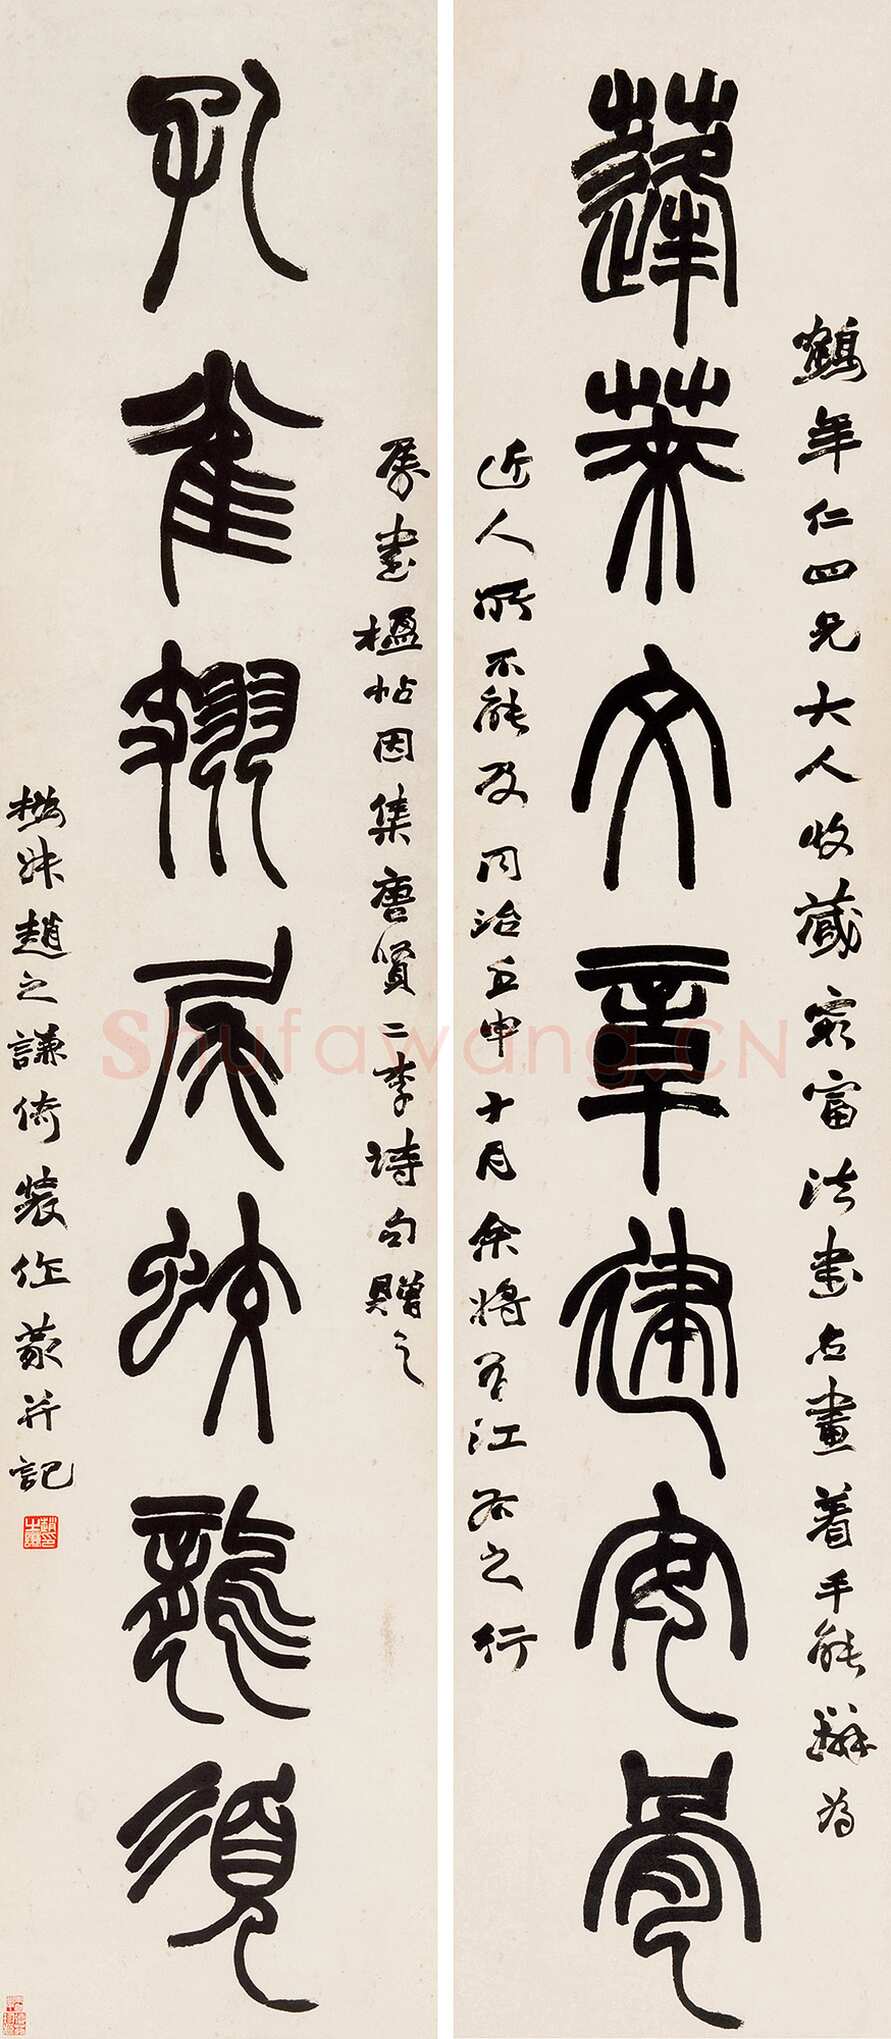 鶴年仁四兄大人收藏最富法書名畫着手能辨為
蓬萊文章建安骨
近人所不能及同治壬申十月余將有江右之行
屬書楹帖因集唐賢二李詩句贈之
孔雀翅尾蛟龍須
撝叔趙之謙倚裝作篆并記
Shufawang.CN